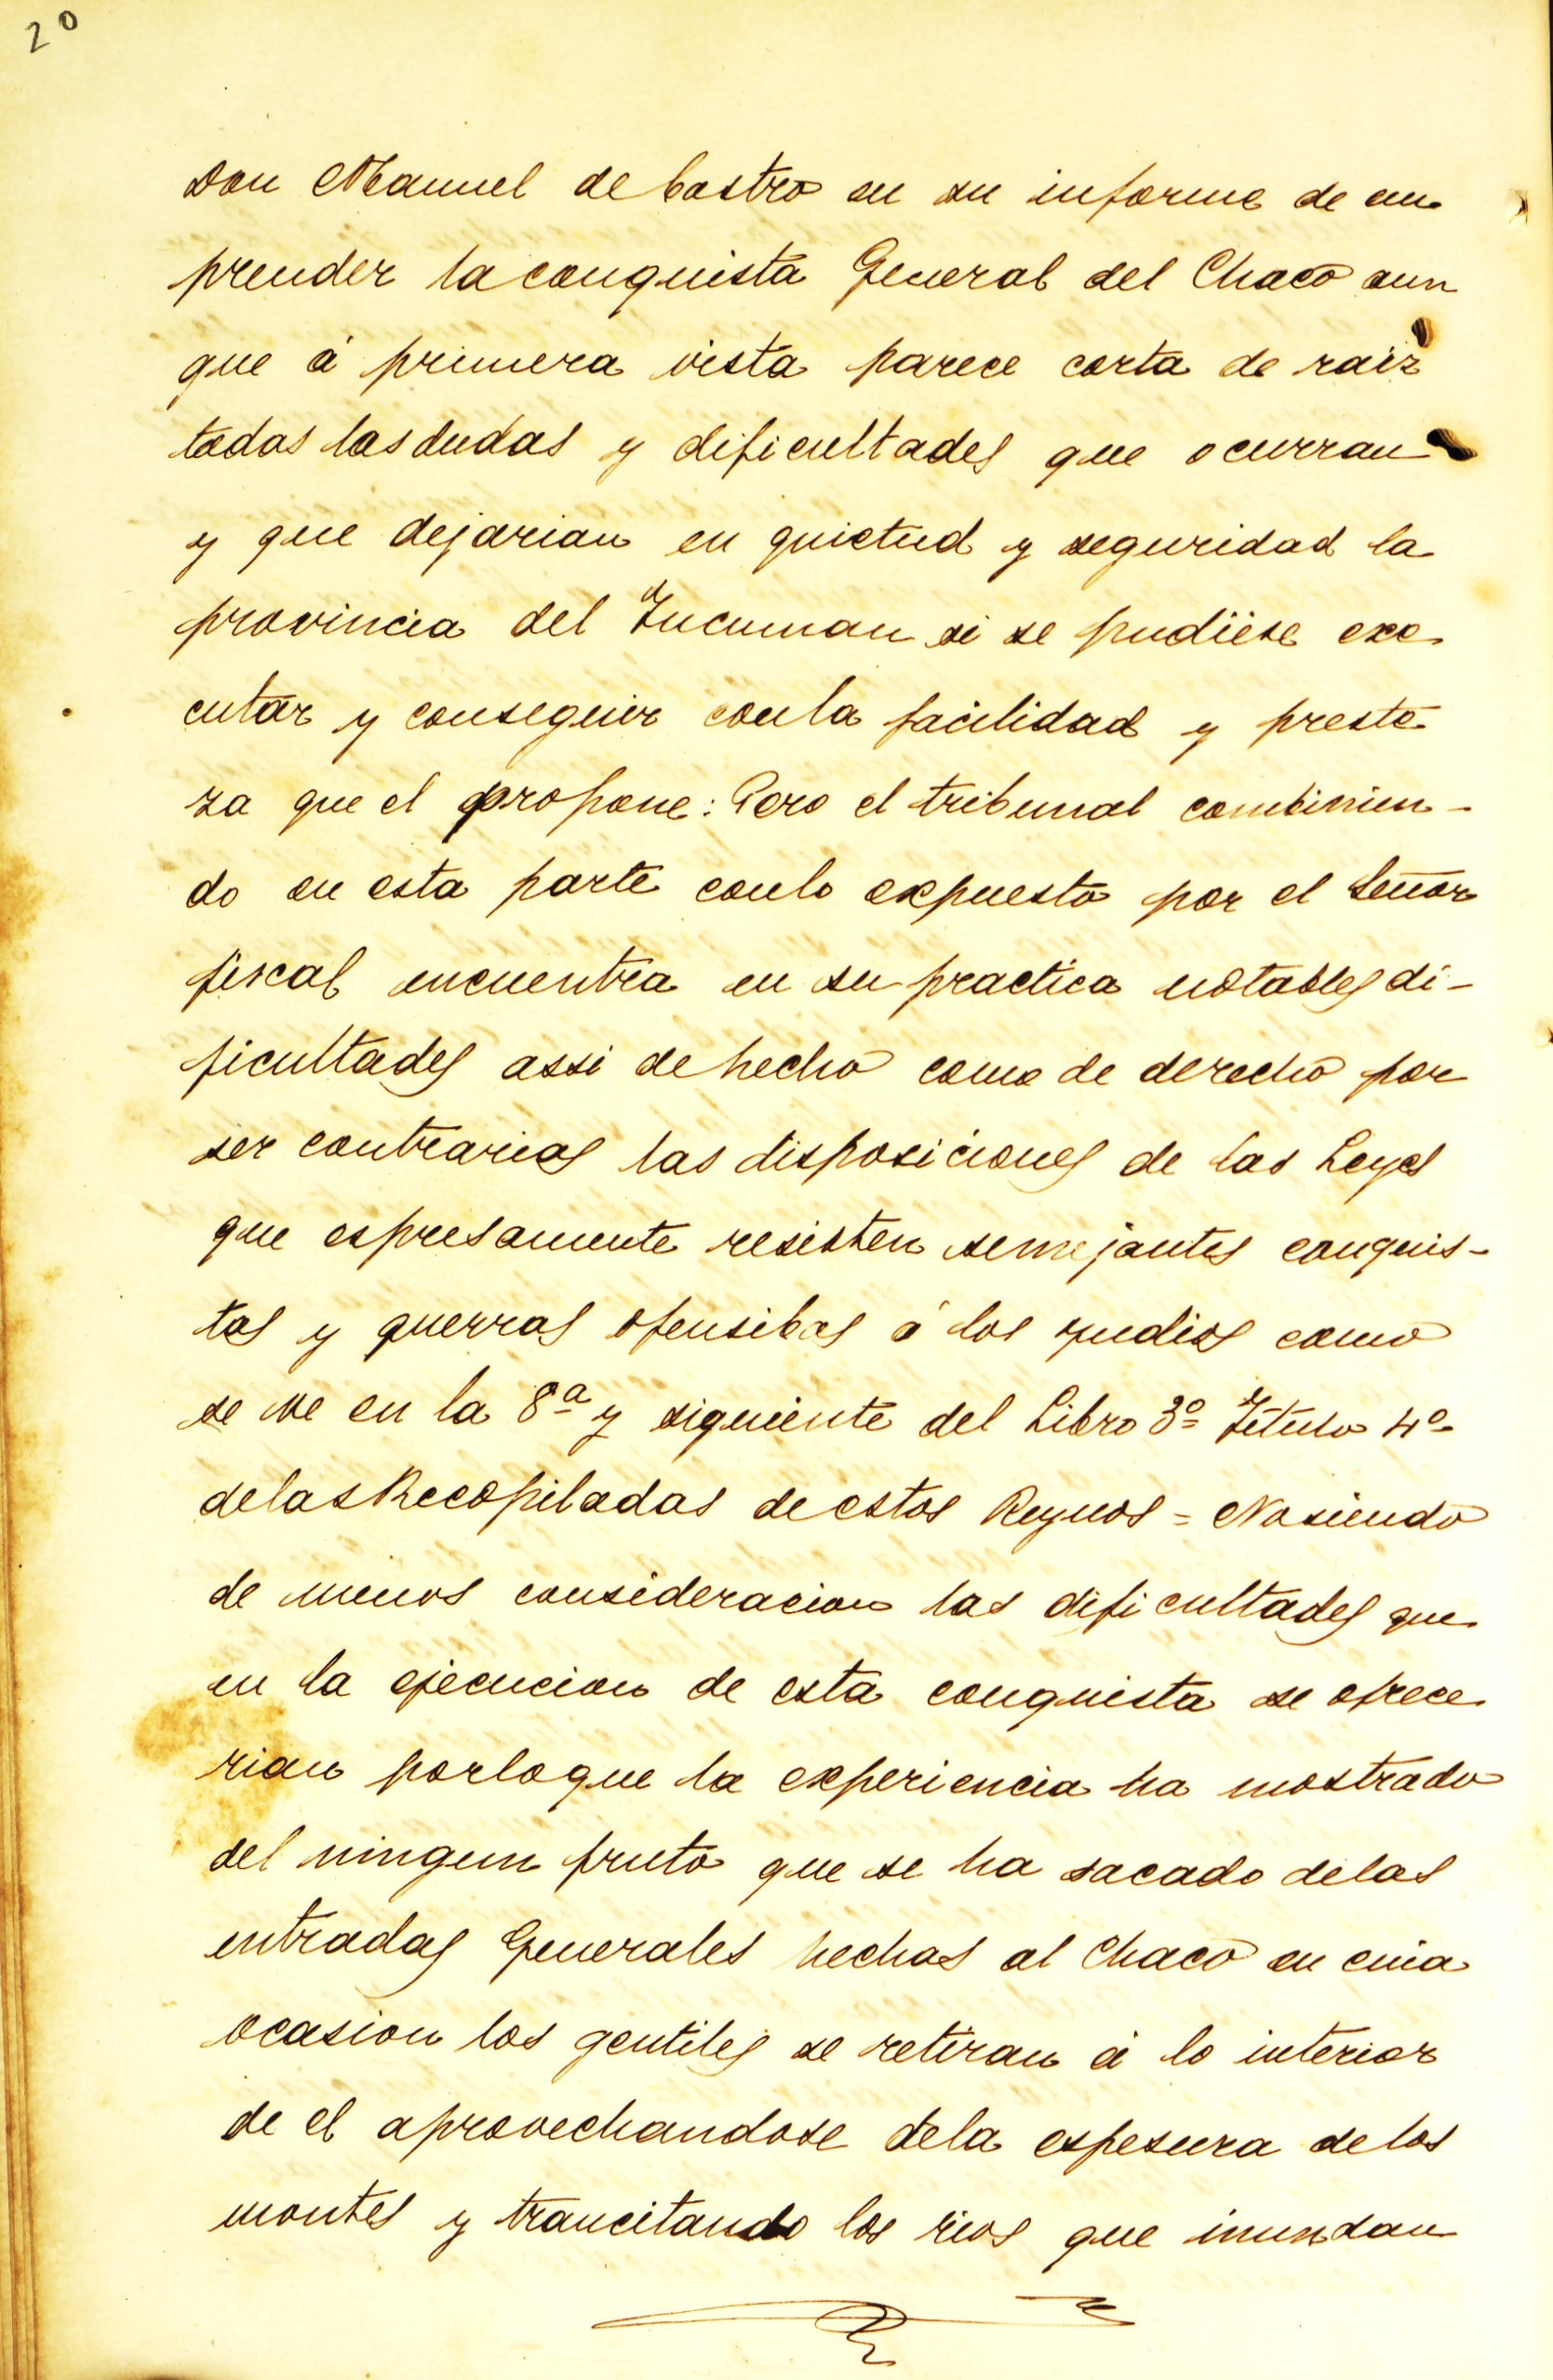 20
Don Manuel de Castro en su informe de em
prender la conquista General del Chaco aun
que á primera vista parece corta de raiz
todas las dudas y dificultades que ocurran
y que dejarian en quietud y seguridad la
provincia del Tucuman si se pudiese exe
cutar y conseguir con la facilidad y preste
za que el propone: Pero el tribunal combinien-
do en esta parte con lo expuesto por el Señor
fiscal encuentra en su practica notables di-
ficultades assi de hecho como de derecho por
ser contrarias las disposiciones de las Leyes
que espresamente resisten semejantes conquis-
tas y guerras ofensibas á los yndios como
se ve en la 8ª y siguiente del Libro 3º Titulo 4º
de las Recopiladas de estos Reynos = No siendo
de menos consideracion las dificultades que
en la ejecucion de esta conquista se ofrece
rian por lo que la experiencia ha mostrado
del ningun fruto que se ha sacado de las
entradas Generales hechas al Chaco en cuia
ocasion los gentiles se retiran á lo interior
de el aprovechandose de la espesura de los
montes y trancitando los rios que inundan